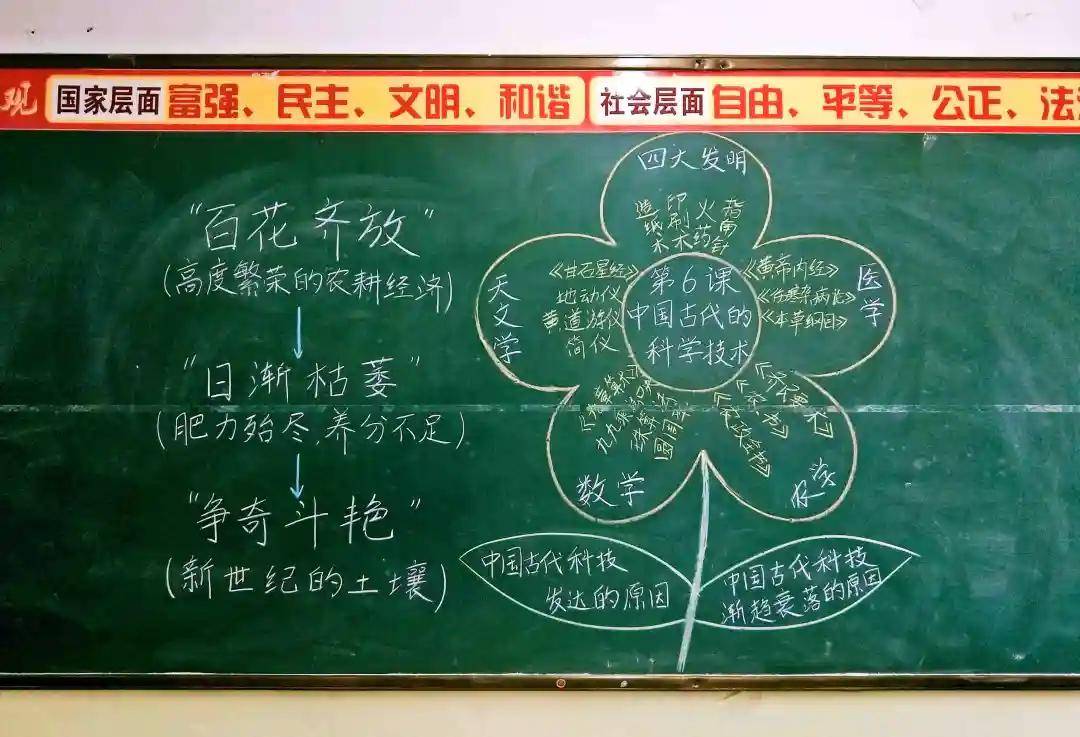 观 国家层面 富强、民主、文明、和谐 社会层面 自由、平等、公正、法
“百花齐放”
(高度繁荣的农耕经济)
“日渐枯萎”
(肥力殆尽,养分不足)
“争奇斗艳”
(新世纪的土壤)
四大发明
造纸术
印刷术
火药
指南针
天文学
《甘石星经》
地动仪
黄道游仪
简仪
第6课
中国古代的
科学技术
《黄帝内经》
《伤寒杂病论》
《本草纲目》
医学
数学
农学
中国古代科技
发达的原因
中国古代科技
渐趋衰落的原因